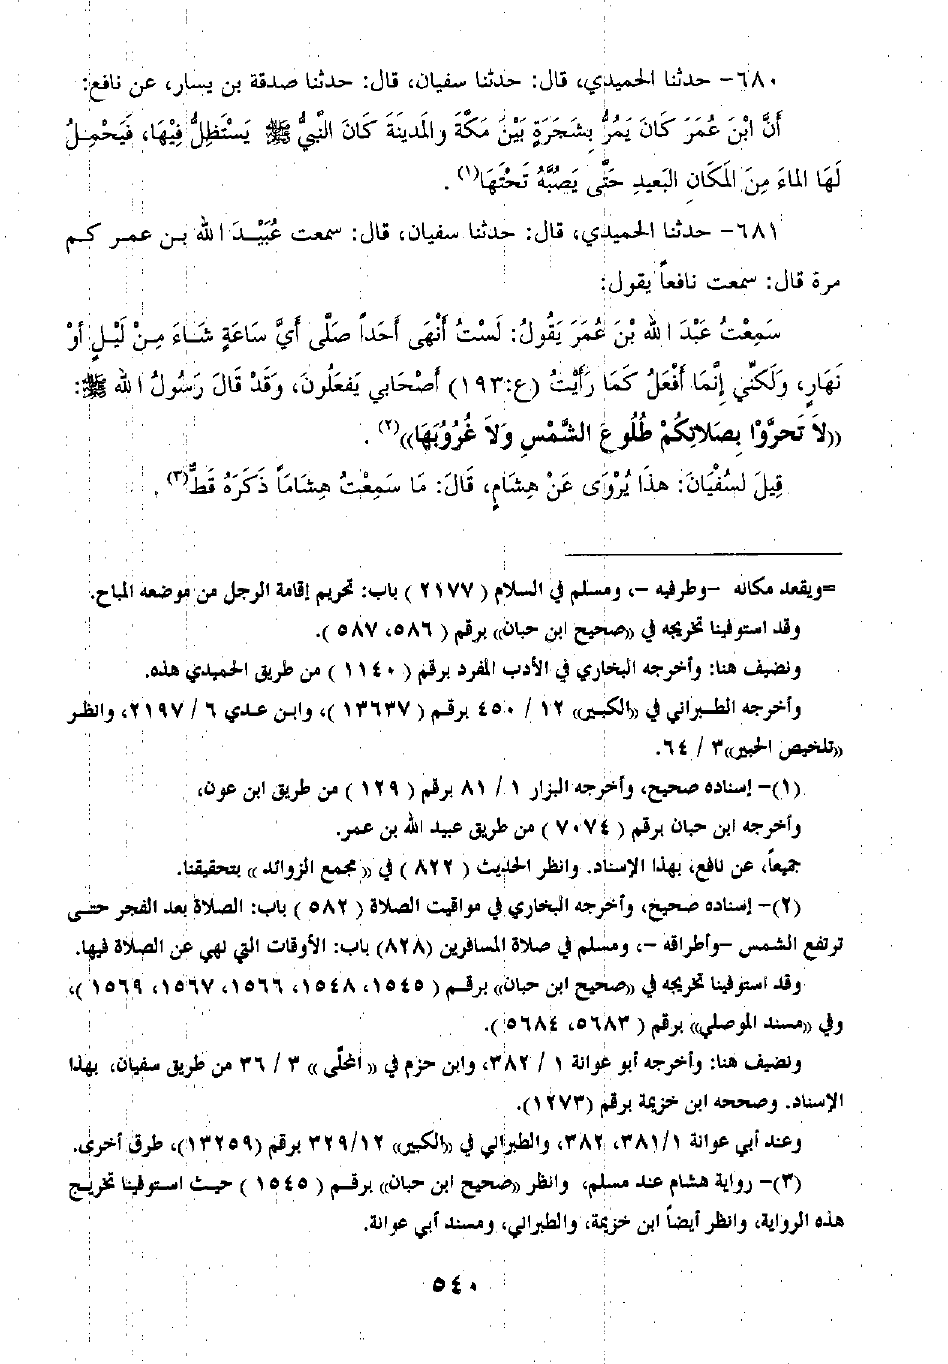 ٦٨٠- حدثنا الحميدي، قال: حدثنا سفيان، قال: حدثنا صدقة بن يسار، عن نافع:
أَنَّ ابْنَ عُمَرَ كَانَ يَمُرُّ بِشَجَرَةٍ بَيْنَ مَكَّةَ والمَدِينَةِ كَانَ النَّبِيُّ ﷺ يَسْتَظِلُّ فِيْهَا، فَيَحْمِلُ
لَهَا المَاءَ مِنَ المَكَانِ البَعيدِ حَتَّى يَصُبَّهُ تَحْتَهَا(١) .
٦٨١- حدثنا الحميدي، قال: حدثنا سفيان، قال: سمعت عُبَيْدَ الله بن عمر كم
مرة قال: سمعت نافعاً يقول:
سَمِعْتُ عَبْدَ الله بْنَ عُمَرَ يَقُولُ: لَسْتُ أَنْهَى أَحَداً صَلَّى أَيَّ سَاعَةٍ شَاءَ مِنْ لَيْلٍ أوْ
نَهَارٍ، وَلَكنِّي إِنَّمَا أَفْعَلُ كَمَا رَأَيْتُ (ع:١٩٣) أَصْحَابي يَفعَلُونَ، وَقَدْ قَالَ رَسُولُ الله ﷺ:
((لاَ تَحرَّوْا بِصَلاتِكُمْ طُلُوعَ الشَّمْسِ وَلاَ غُرُوْبَهَا))(٢) .
قِيلَ لسُفْيَانَ: هذَا يُرْوَى عَنْ هِشَامٍ، قَالَ: مَا سَمِعْتُ هِشَاماً ذَكَرَهُ قَطُّ(٣) .
=ويقعد مكانه -وطرفيه -، ومسلم في السلام ( ٢١٧٧ ) باب: تحريم إقامة الرجل من موضعه المباح.
وقد استوفينا تخريجه في ((صحيح ابن حبان)) برقم ( ٥٨٦، ٥٨٧ ).
ونضيف هنا: وأخرجه البخاري في الأدب المفرد برقم ( ١١٤٠ ) من طريق الحميدي هذه.
وأخرجه الطبراني في ((الكبير)) ١٢ / ٤٥٠ برقم ( ١٣٦٣٧ )، وابن عدي ٦ / ٢١٩٧، وانظر
((تلخيص الحبير)) ٣ / ٦٤.
(١)- إسناده صحيح، وأخرجه البزار ١ / ٨١ برقم ( ١٢٩ ) من طريق ابن عون،
وأخرجه ابن حبان برقم ( ٧٠٧٤ ) من طريق عبيد الله بن عمر.
جميعاً، عن نافع، بهذا الإسناد. وانظر الحديث ( ٨٢٢ ) في ((مجمع الزوائد )) بتحقيقنا.
(٢)- إسناده صحيح، وأخرجه البخاري في مواقيت الصلاة ( ٥٨٢ ) باب: الصلاة بعد الفجر حتى
ترتفع الشمس -وأطرافه -، ومسلم في صلاة المسافرين (٨٢٨) باب: الأوقات التي نهي عن الصلاة فيها.
وقد استوفينا تخريجه في ((صحيح ابن حبان)) برقم ( ١٥٤٥، ١٥٤٨، ١٥٦٦، ١٥٦٧، ١٥٦٩ )،
وفي ((مسند الموصلي)) برقم ( ٥٦٨٣، ٥٦٨٤ ).
ونضيف هنا: وأخرجه أبو عوانة ١ / ٣٨٢، وابن حزم في (( المحلَّى )) ٣ / ٣٦ من طريق سفيان، بهذا
الإسناد. وصححه ابن خزيمة برقم (١٢٧٣).
وعند أبي عوانة ٣٨١/١، ٣٨٢، والطبراني في ((الكبير)) ٣٢٩/١٢ برقم (١٣٢٥٩)، طرق أخرى.
(٣)- رواية هشام عند مسلم، وانظر ((صحيح ابن حبان)) برقم ( ١٥٤٥ ) حيث استوفينا تخريج
هذه الرواية، وانظر أيضاً ابن خزيمة، والطبراني، ومسند أبي عوانة.
٥٤٠